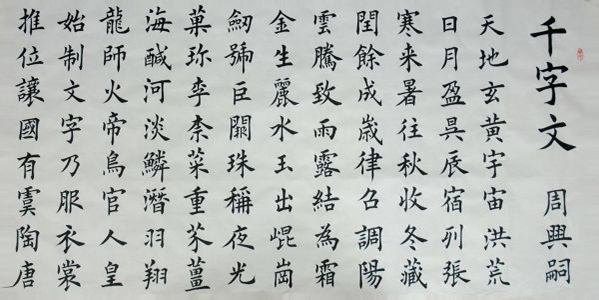 千字文 周興嗣
天地玄黄宇宙洪荒
日月盈昃辰宿列張
寒来暑往秋收冬藏
閏餘成歲律召調陽
雲騰致雨露結為霜
金生麗水玉出崐崗
劒號巨闕珠稱夜光
菓珎李柰菜重芥薑
海鹹河淡鱗潛羽翔
龍師火帝鳥官人皇
始制文字乃服衣裳
推位讓國有虞陶唐